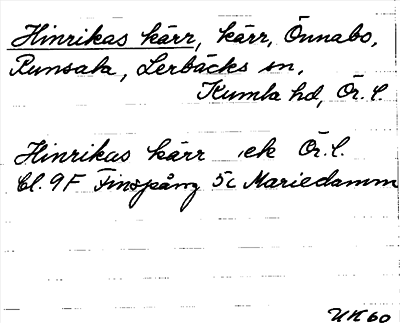 Hinrikas kärr, kärr, Önnabo,
Runsala, Lerbäcks sn,
Kumla hd, Ör. l.
Hinrikas kärr ek Ör. l.
Bl. 9F Finspång 5c Mariedamm
UK60